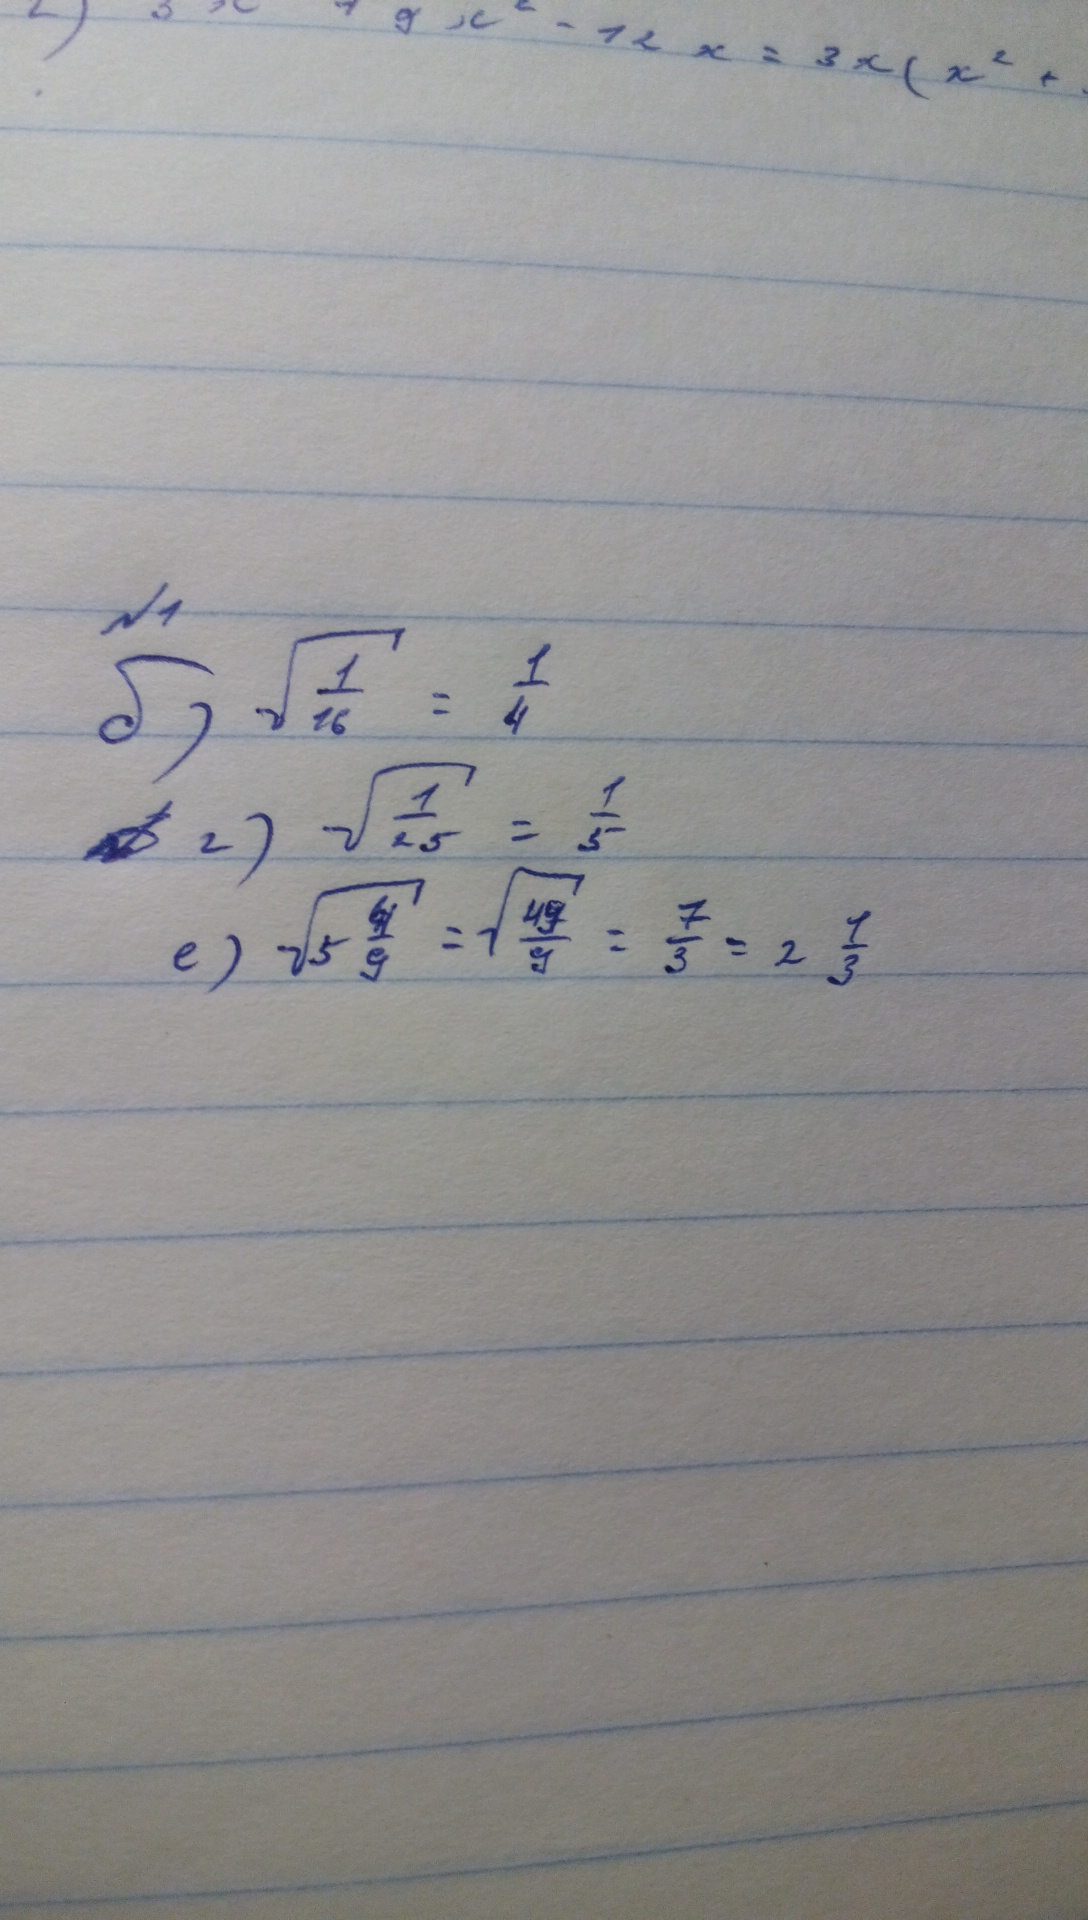 2) 3x + 9x² - 12x = 3x(x² +
№1
б) √(1/16) = 1/4
г) √(1/25) = 1/5
е) √(5 4/9) = √(49/9) = 7/3 = 2 1/3